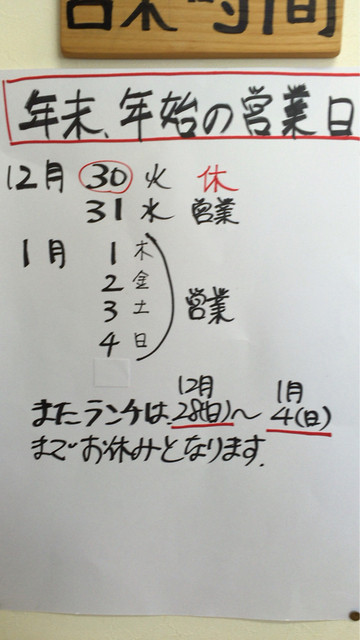 営業時間
年末、年始の営業日
12月 30 火 休
31 水 営業
1月 1 木
2 金
3 土 営業
4 日
12月 1月
またランチは、28(日)〜4(日)
までお休みとなります。